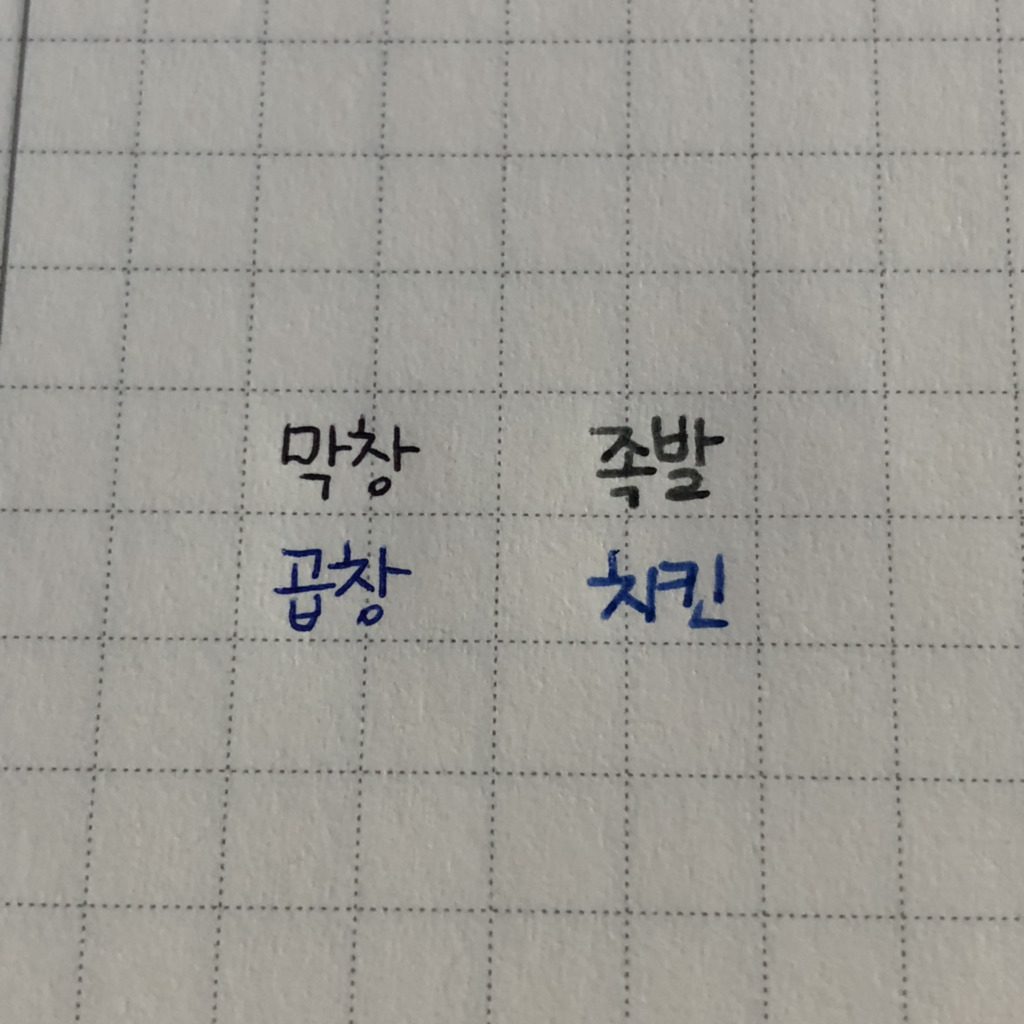 막창 족발
곱창 치킨